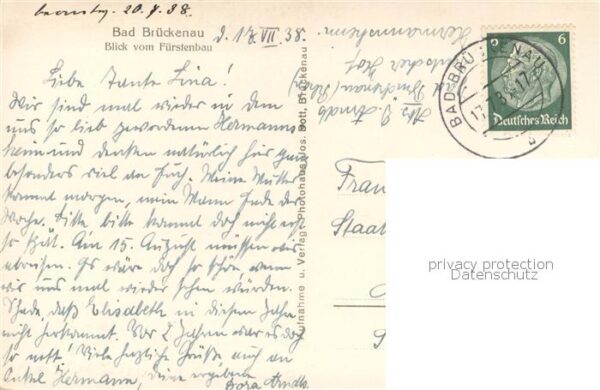 beantw. 20.7.38.
Bad Brückenau
Blick vom Fürstenbau
d. 17. VII. 38.
Liebe Tante Lina!
Wir sind mal wieder in dem
uns so lieb gewordenen Hermanns
heim und denken natürlich hier ganz
besonders viel an Euch. Meine Mutter
kommt morgen, mein Mann Ende der
Woche. Bitte bitte kommt doch nicht erst
so spät. Am 15. August müssen wir
abreisen. Es wäre doch so schön, wenn
wir uns mal wieder sehen würden.
Schade, daß Elisabeth in diesem Jahr
nicht herkommt. Vor 2 Jahren war es doch
so nett! Viele herzliche Grüße auch an
Onkel Hermann, Deine ergebene
Dora Arndts.
Aufnahme u. Verlag: Photohaus Jos. Bott, Brückenau
Abs. Arndts
Bad Brückenau
Hermannsheim
BAD BRÜCKENAU
17.7.38.17
b
6
6
Deutsches Reich
Frau
Staat
privacy protection
Datenschutz